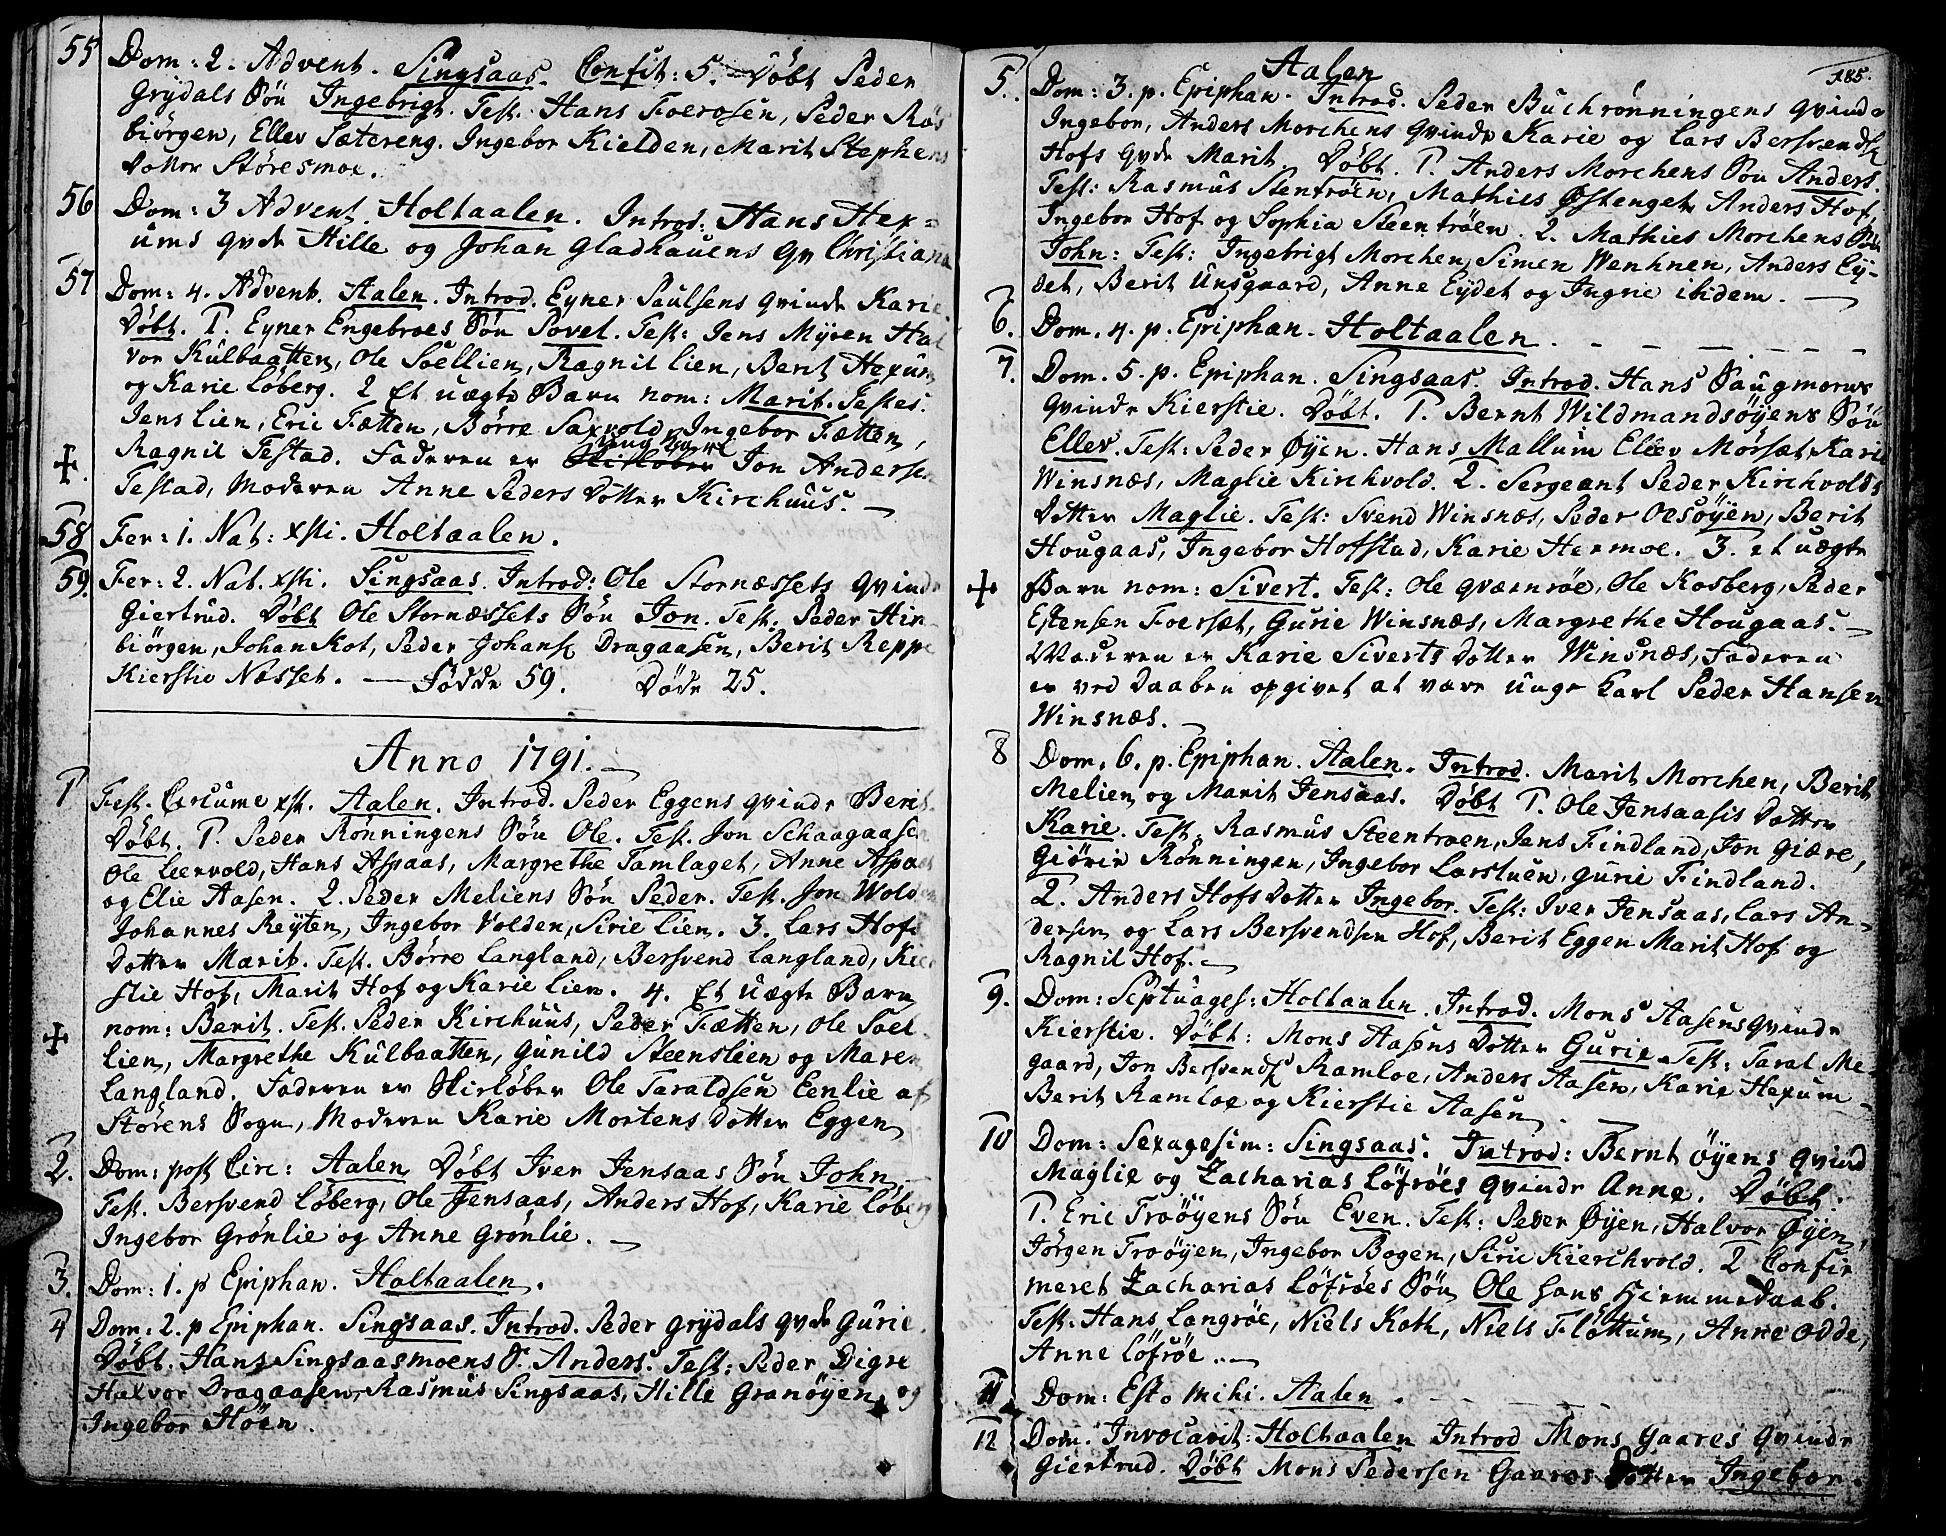 55 Dom: 2. Advent. Singsaas. Confit: 5. Döbt Peder
Grydals Sön Ingebrigt. Test. Hans Foerosen, Peder Rös
biörgen, Ellev Sætereng. Ingebor Kielden, Marit Stephens
Dotter Störesmoe.
56 Dom: 3 Advent. Holtaalen. Introd: Hans Hex=
ums qvde Hille og Johan Gladhauens qv Christiana
57 Dom: 4. Advent. Aalen. Introd. Eyner Paulsens qvinde Karie.
Döbt. 1. Eyner Engebroes Sön Povel. Test: Jens Myren Hal
vor Kulbaatten, Ole Soellien, Ragnil Lien, Berit Hexum
og Karie Löberg. 2 Et uægte Barn nom: Marit. Testes:
Jens Lien, Eric Fætten, Börre Saxvold, Ingebor Fætten,
Ragnil Testad. Faderen er Skirløber ung Karl Jon Anderse
Testad, Moderen Anne Peders Dotter Kirchuus.
58 Fer: 1. Nat: xsti. Holtaalen.
59. Fer: 2. Nat. xsti. Singsaas. Introd: Ole Stornæssets qvinde
Giertrud. Döbt Ole Stornæssets Sön Jon. Test. Peder Hin
biörgen, Johan Kot, Peder Johans. Dragaasen, Berit Reppe
Kierstie Næsset. — Födde 59. Döde 25.
Anno 1791.
1 Fest. Circume xsti. Aalen. Introd. Peder Eggens qvinde Berit.
Döbt. 1. Peder Rönningens Sön Ole. Test. Jon Schaagaasen
Ole Leervold, Hans Aspaas, Margrethe Tamlaget, Anne Aspaas
og Elie Aasen. 2. Peder Meliens Sön Peder. Test. Jon Wolden
Johannes Reyten, Ingebor Volden, Sirie Lien. 3. Lars Hofs
Dotter Marit. Test. Börre Langland, Bersvend Langland, Kier
stie Hof, Marit Hof og Karie Lien. 4. Et uægte Barn
nom: Berit. Test. Peder Kirchuus, Peder Fætten, Ole Soel
lien, Margrethe Kulbaatten, Gunild Steenslien og Maren
Langland. Faderen er Skirløber Ole Taraldsen Eenlie af
Störens Sogn, Moderen Karie Mortens Dotter Eggen
2. Dom: post Circ: Aalen Döbt Iver Jensaas Sön John.
Test. Bersvend Löberg, Ole Jensaas, Anders Hof, Karie Löberg
Ingebor Grönlie og Anne Grönlie.
3. Dom: 1. p Epiphan. Holtaalen.
4 Dom: 2. p Epiphan. Singsaas. Introd. Peder Grydals qvde Gurie.
Döbt. Hans Singsaasmoens S. Anders. Test: Peder Digre
Halvor Dragaasen, Rasmus Singsaas, Hille Granöyen og
Ingebor Höen.
185.
5. Dom: 3. p. Epiphan. Aalen Introd. Peder Buchrönningens qvinde
Ingebor, Anders Morchens qvinde Karie og Lars Bersvends.
Hofs qvde Marit. Döbt. 1. Anders Morchens Sön Anders.
Test: Rasmus Stentröen, Mathies Østenget Anders Hof,
Ingebor Hof og Sophia Steentröen. 2. Mathies Morchens Sön
John: Test: Ingebrigt Morchen, Simen Wenhnen, Anders Ey-
det, Berit Unsgaard, Anne Eydet og Ingrie ibidem.
6. Dom. 4. p. Epiphan. Holtaalen.
7. Dom. 5. p. Epiphan. Singsaas. Introd. Hans Saugmoens
qvinde Kierstie. Döbt. 1. Bernt Wildmandsöyens Sön
Ellev. Test: Peder Øyen. Hans Mallum Ellev Mörsæt, Karie
Winsnæs, Maglie Kirchvold. 2. Sergeant Peder Kirchvolds
Dotter Maglie. Test: Svend Winsnæs, Peder Oesöyen, Berit
Hougaas, Ingebor Hofstad, Karie Hermoe. 3. et uægte
Barn nom: Sivert. Test: Ole Qværnröe, Ole Kosberg, Peder
Estensen Foersæt, Gurie Winsnæs, Margrethe Hougaas.
Moderen er Karie Siverts Dotter Winsnæs, Faderen
er ved Daaben opgivet at være unge Karl Peder Hansen
Winsnæs.
8 Dom. 6. p. Epiphan. Aalen. Introd. Marit Morchen, Berit
Melien og Marit Jensaas. Döbt 1. Ole Jensaasis Dotter
Karie. Test. Rasmus Steentroen, Jens Findland, Jon Giære,
Giörie Rönningen, Ingebor Larstuen, Gurie Findland.
2. Anders Hofs Dotter Ingebor. Test: Iver Jensaas, Lars An-
dersen og Lars Bersvendsen Hof, Berit Eggen Marit Hof og
Ragnil Hof.
9. Dom: Septuages: Holtaalen. Introd. Mons Aasens qvinde
Kierstie. Döbt: Mons Aasens Dotter Gurie. Test: Taral Me-
gaard, Jon Bersvends. Ramloe, Anders Aasen, Karie Hexum
Berit Ramloe og Kierstie Aasen.
10 Dom: Sexagesim: Singsaas. Introd: Bernt Öyens qvind
Maglie og Zacharias Löfröes qvinde Anne. Döbt:
1. Eric Troöyens Sön Even. Test: Peder Øyen, Halvor Øyen,
Jörgen Troöyen, Ingebor Bogen, Sirie Kierchvold. 2 Confir
meret Zacharias Löfröes Sön Ole hans Hiemmedaab.
Test: Hans Langröe, Niels Koth, Niels Flöttum, Anne Odde,
Anne Löfröe.
11 Dom: Esto mihi. Aalen.
12 Dom. Invocavit: Holtaalen Introd Mons Gaares qvinde
Giertrud. Döbt Mons Pedersen Gaares Dotter Ingebor.